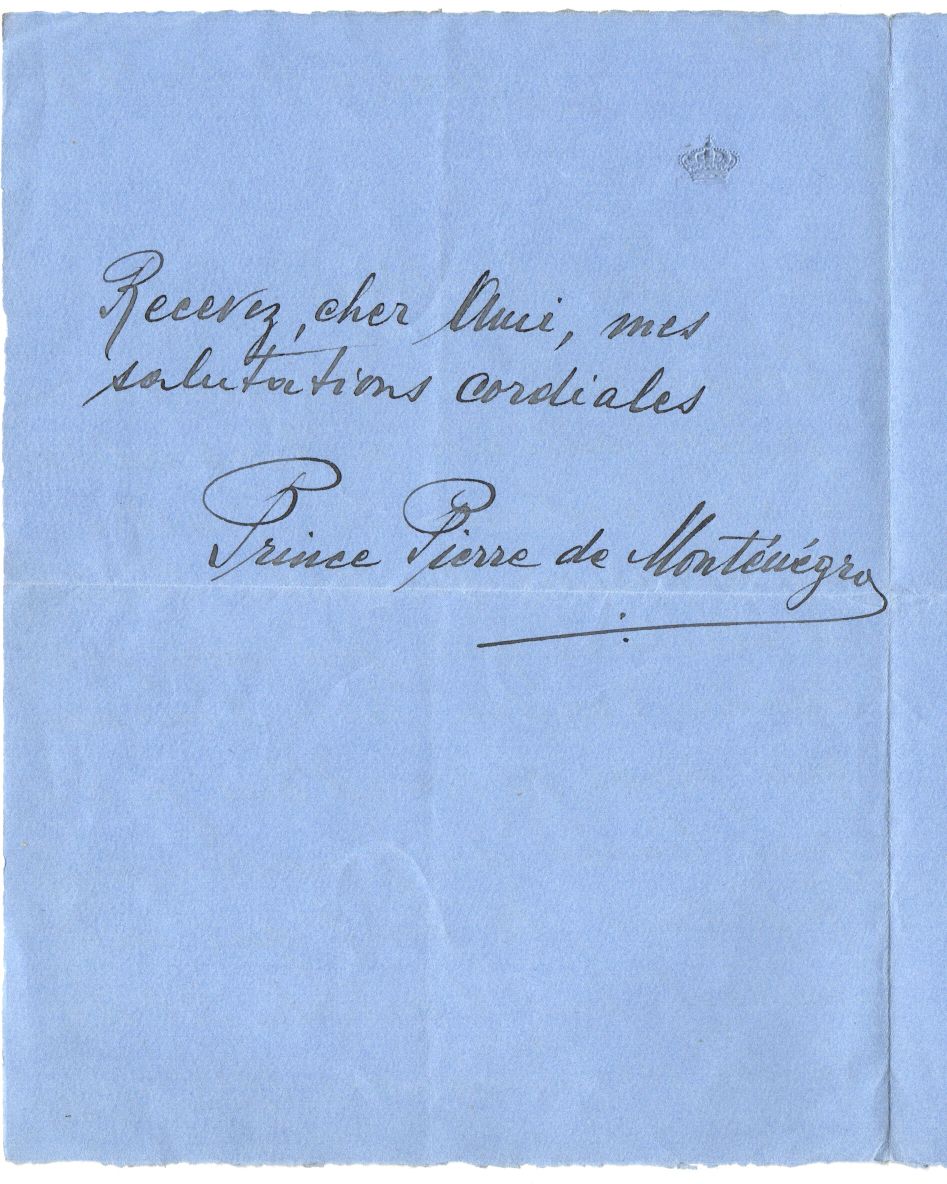 Recevez, cher Ami, mes
salutations cordiales
Prince Pierre de Monténégro